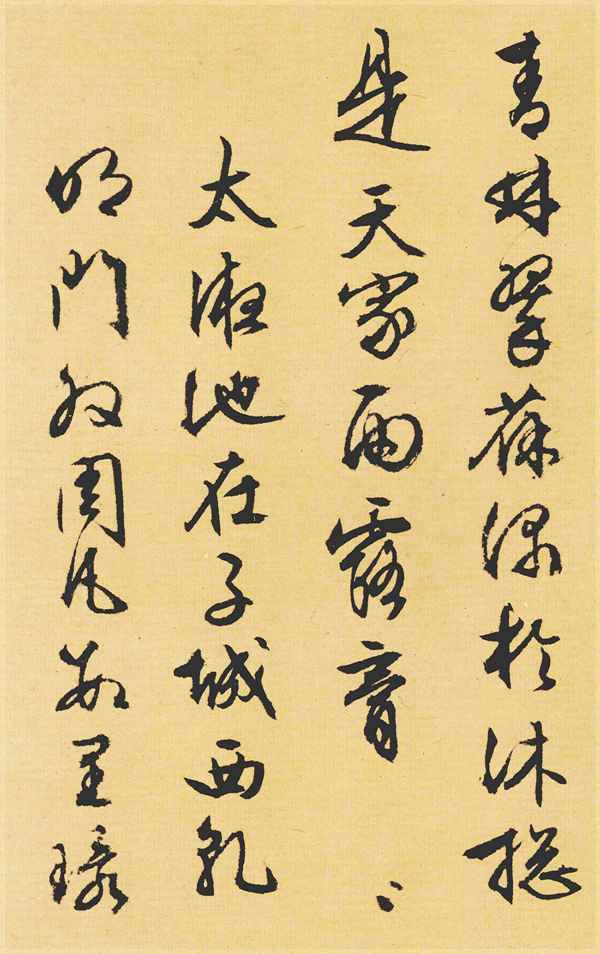 青林翠葆深於沐總
是天家雨露膏
太液池在子城西乾
明門外周凡數里環